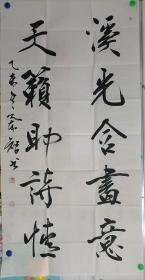 溪光合畫意
天籟助詩情
乙未冬
書